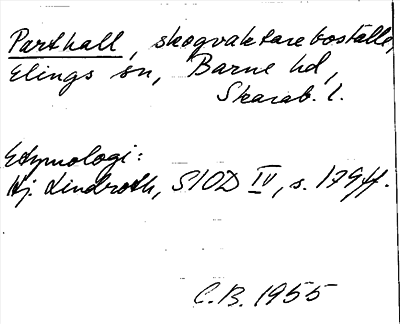 Parthall, skogvaktareboställe,
Elings sn, Barne hd,
Skarab. l.
Etymologi:
Hj. Lindroth, SIOD IV, s. 179 ff.
C.B. 1955